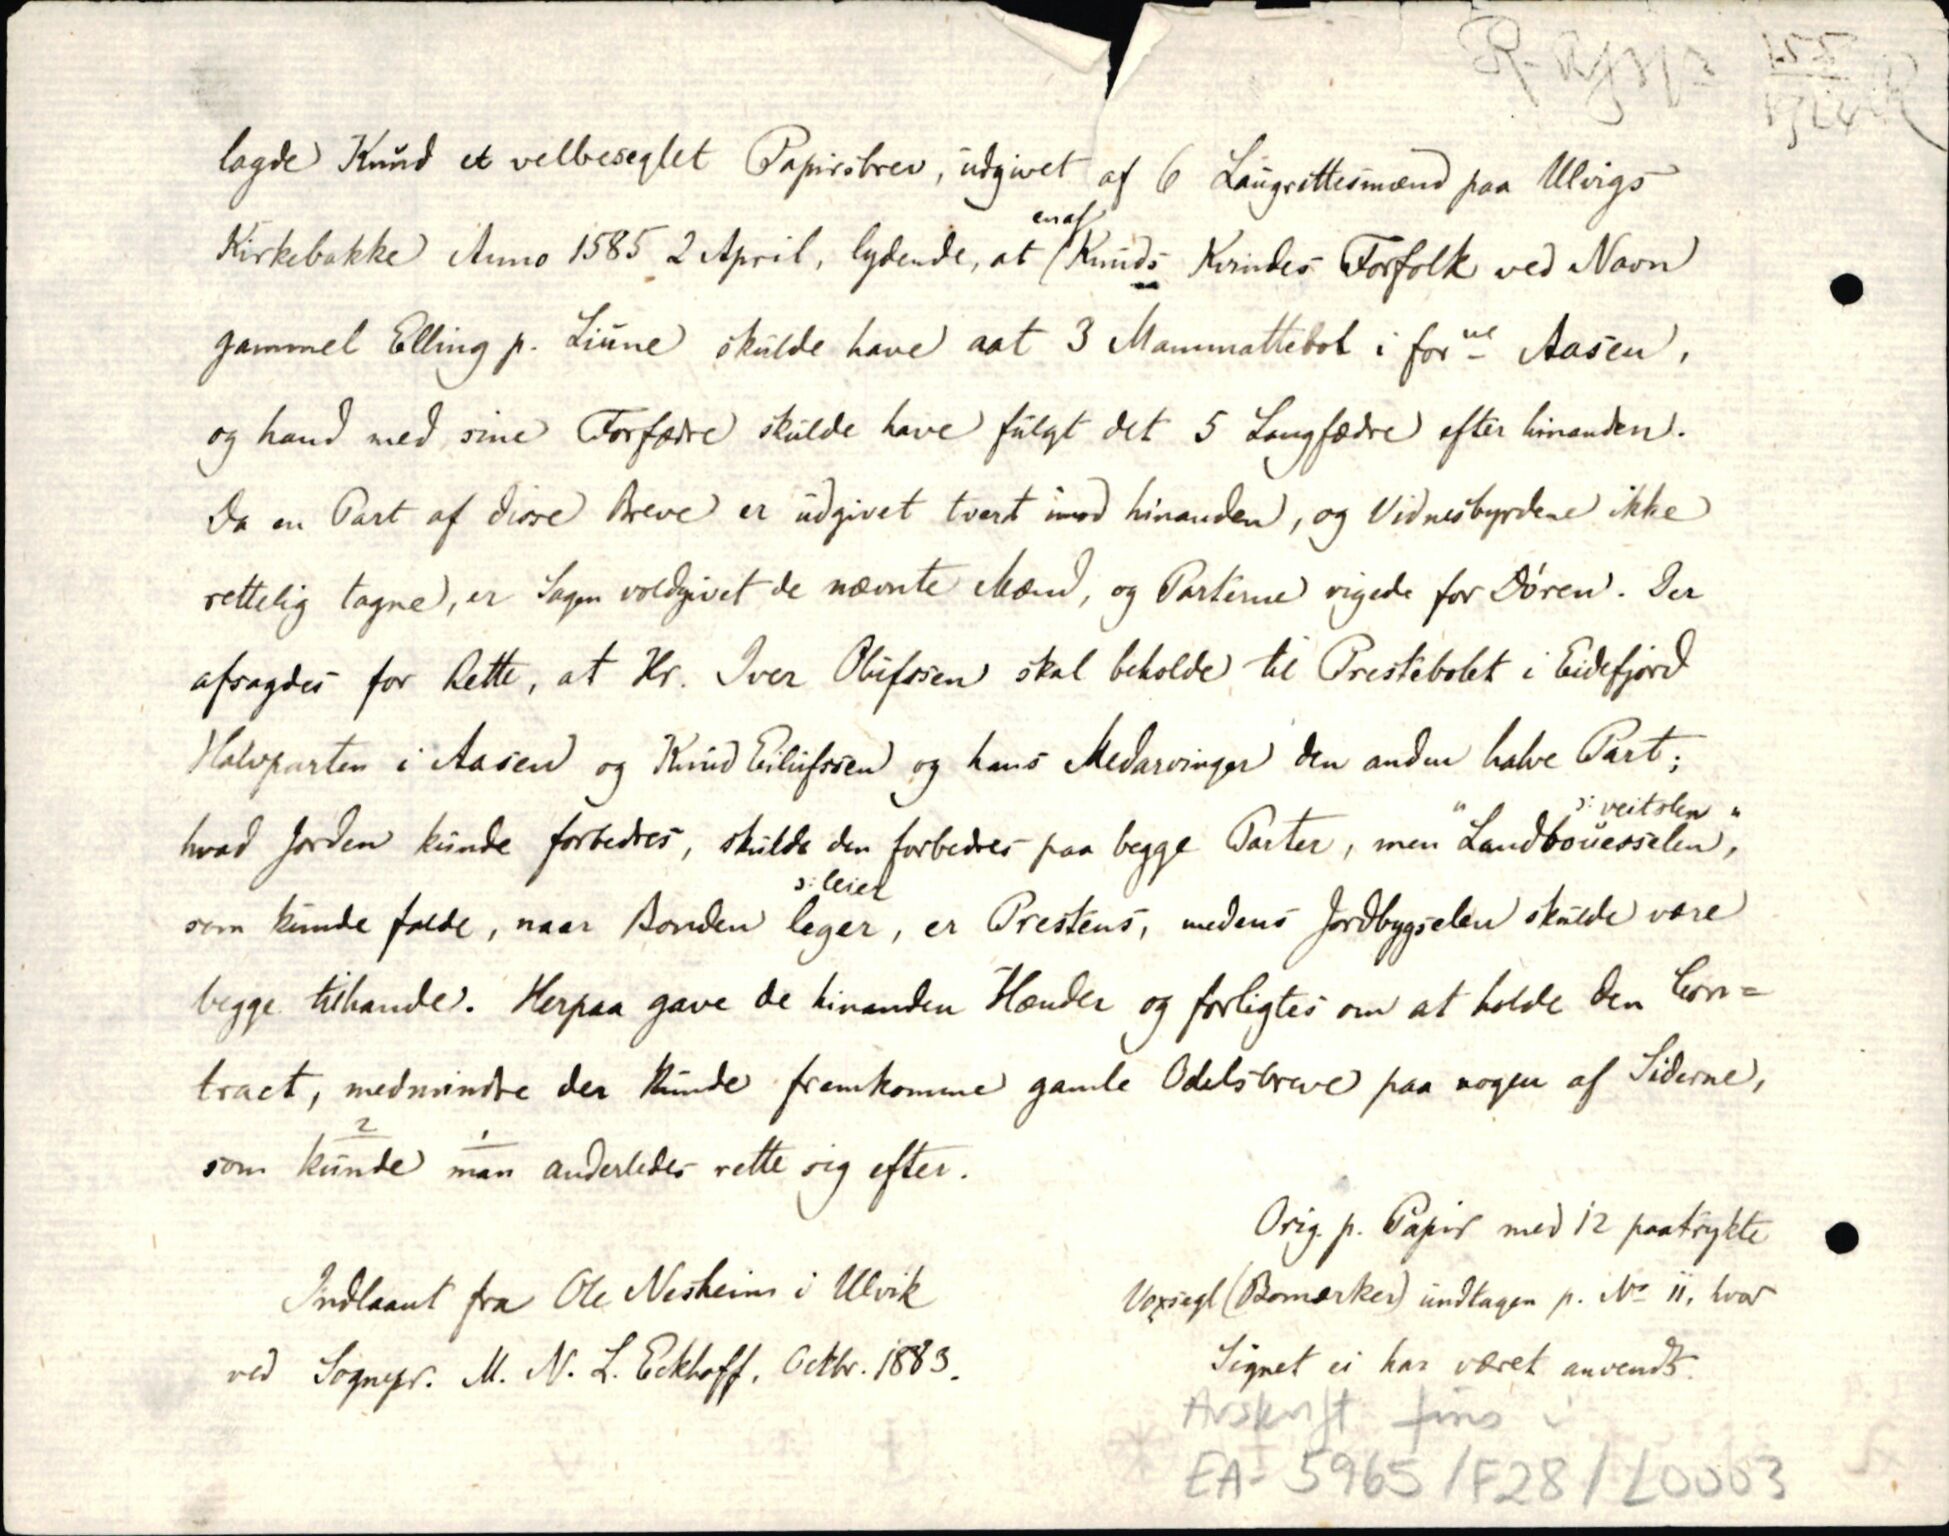 155
lagde Knud et velbeseglet Papirsbrev, udgivet af 6 Laugrettesmænd paa Ulvigs
Kirkebakke Anno 1585 2 April, lydende, at en af Knuds Kvindes Forfolk ved Navn
gammel Elling p. Liune skulde have aat 3 Mammattebol i forne Aasen,
og hand med sine Forfædre skulde have fulgt det 5 Langfædre efter hinanden.
Da en Part af disse Breve er udgivet tvert imod hinanden, og Vidnesbyrdene ikke
rettelig tagne, er Sagen voldgivet de nævnte Mænd, og Parterne vigede for Døren. Der
afsagdes for Rette, at Hr. Iver Olufssen skal beholde til Prestebolet i Eidefjord
Halvparten i Aasen og Knud Eilufssen og hans Medarvinger den anden halve Part;
hvad Jorden kunde forbedres, skulde den forbedres paa begge Parter, men "Landbouesselen",
ɔ: veitslen
som kunde falde, naar Bonden leger, er Prestens, medens Jordbygselen skulde være
ɔ: leier
begge tilhande. Herpaa gave de hinanden Hænder og forligtes om at holde den Con=
tract, medmindre der kunde fremkomme gamle Odelsbreve paa nogen af Siderne,
som kunde man anderledes rette sig efter.
2 1
Orig. p. Papir med 12 paatrykte
Voxsegl (Bomærker) undtagen p. No 11, hvor
Signet ei har været anvendt.
Indlaant fra Ole Nesheim i Ulvik
ved Sognepr. M. N. L. Eckhoff, Octbr. 1883.
Avskrift fins i
EA-5965/F28/L0003